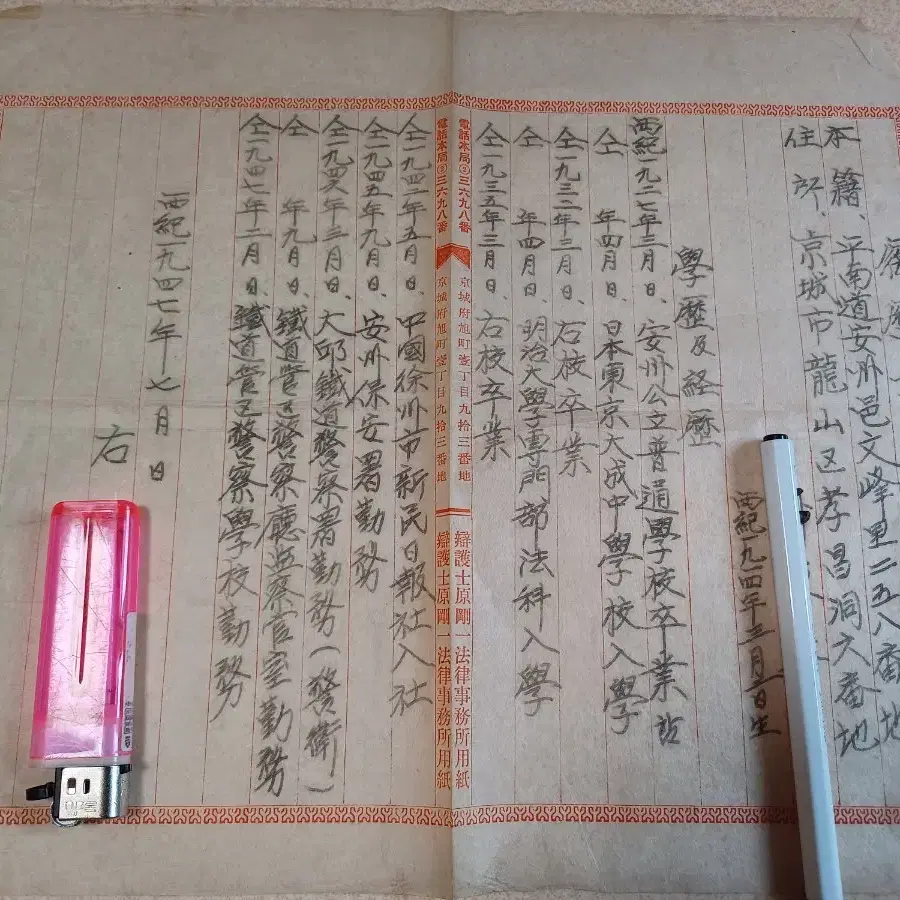 本籍、平南道安州邑文峰里二五八番地
住所、京城市龍山区孝昌洞六番地
西紀一九一四年三月一日生
學歷及経歷
西紀一九二七年三月 日、安州公立普通學校卒業
仝 年四月 日、日本東京大成中學校入學
仝一九三二年三月 日、右校卒業
仝 年四月 日、明治大學専門部法科入學
仝一九三五年三月 日、右校卒業
電話本局②三六九八番 京城府旭町壹丁目九拾三番地 辯護士原剛一法律事務所用紙
電話本局②三六九八番 京城府旭町壹丁目九拾三番地 辯護士原剛一法律事務所用紙
仝一九四二年五月 日、中國徐州市新民日報社入社
仝一九四五年九月 日、安州保安署勤務
仝一九四六年三月 日、大邱鐵道警察署勤務(警衛)
仝 年九月 日、鐵道管区警察廳監察官室勤務
仝一九四七年二月 日、鐵道管区警察學校勤務
西紀一九四七年七月 日
右